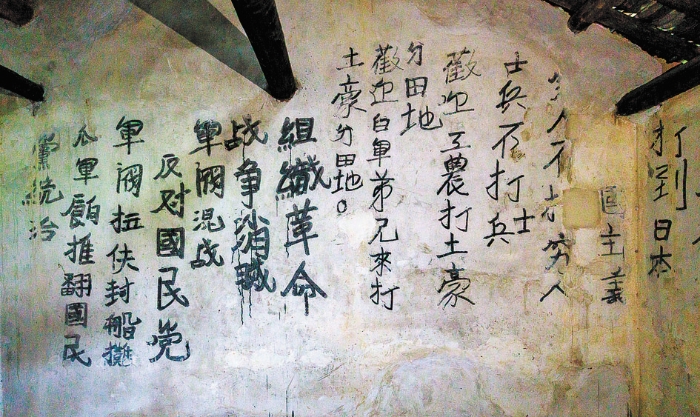 打到日本
國主義
人不打穷人
士兵不打士兵
歡迎工農打土豪
分田地
歡迎白軍弟兄來打
土豪分田地。
組織革命
战争消滅
軍閥混战
反对國民党
軍閥拉伕封船攤
軍餉推翻國民
黨統治